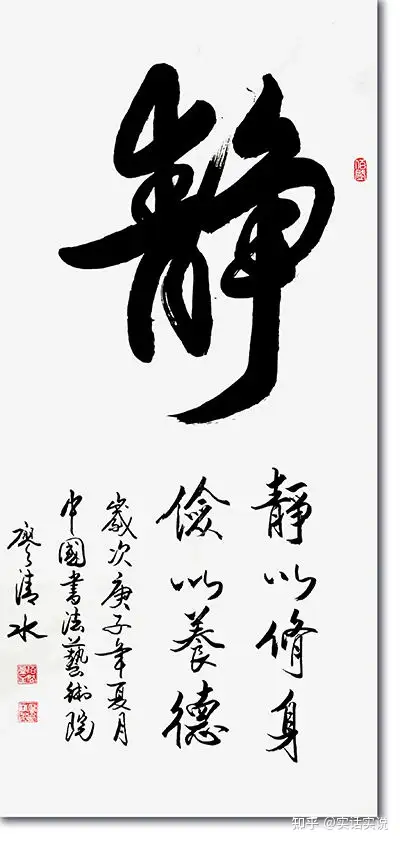 靜
靜以脩身
儉以養德
歲次庚子年夏月
中國書法藝術院
廖清水
知乎 @实话实说